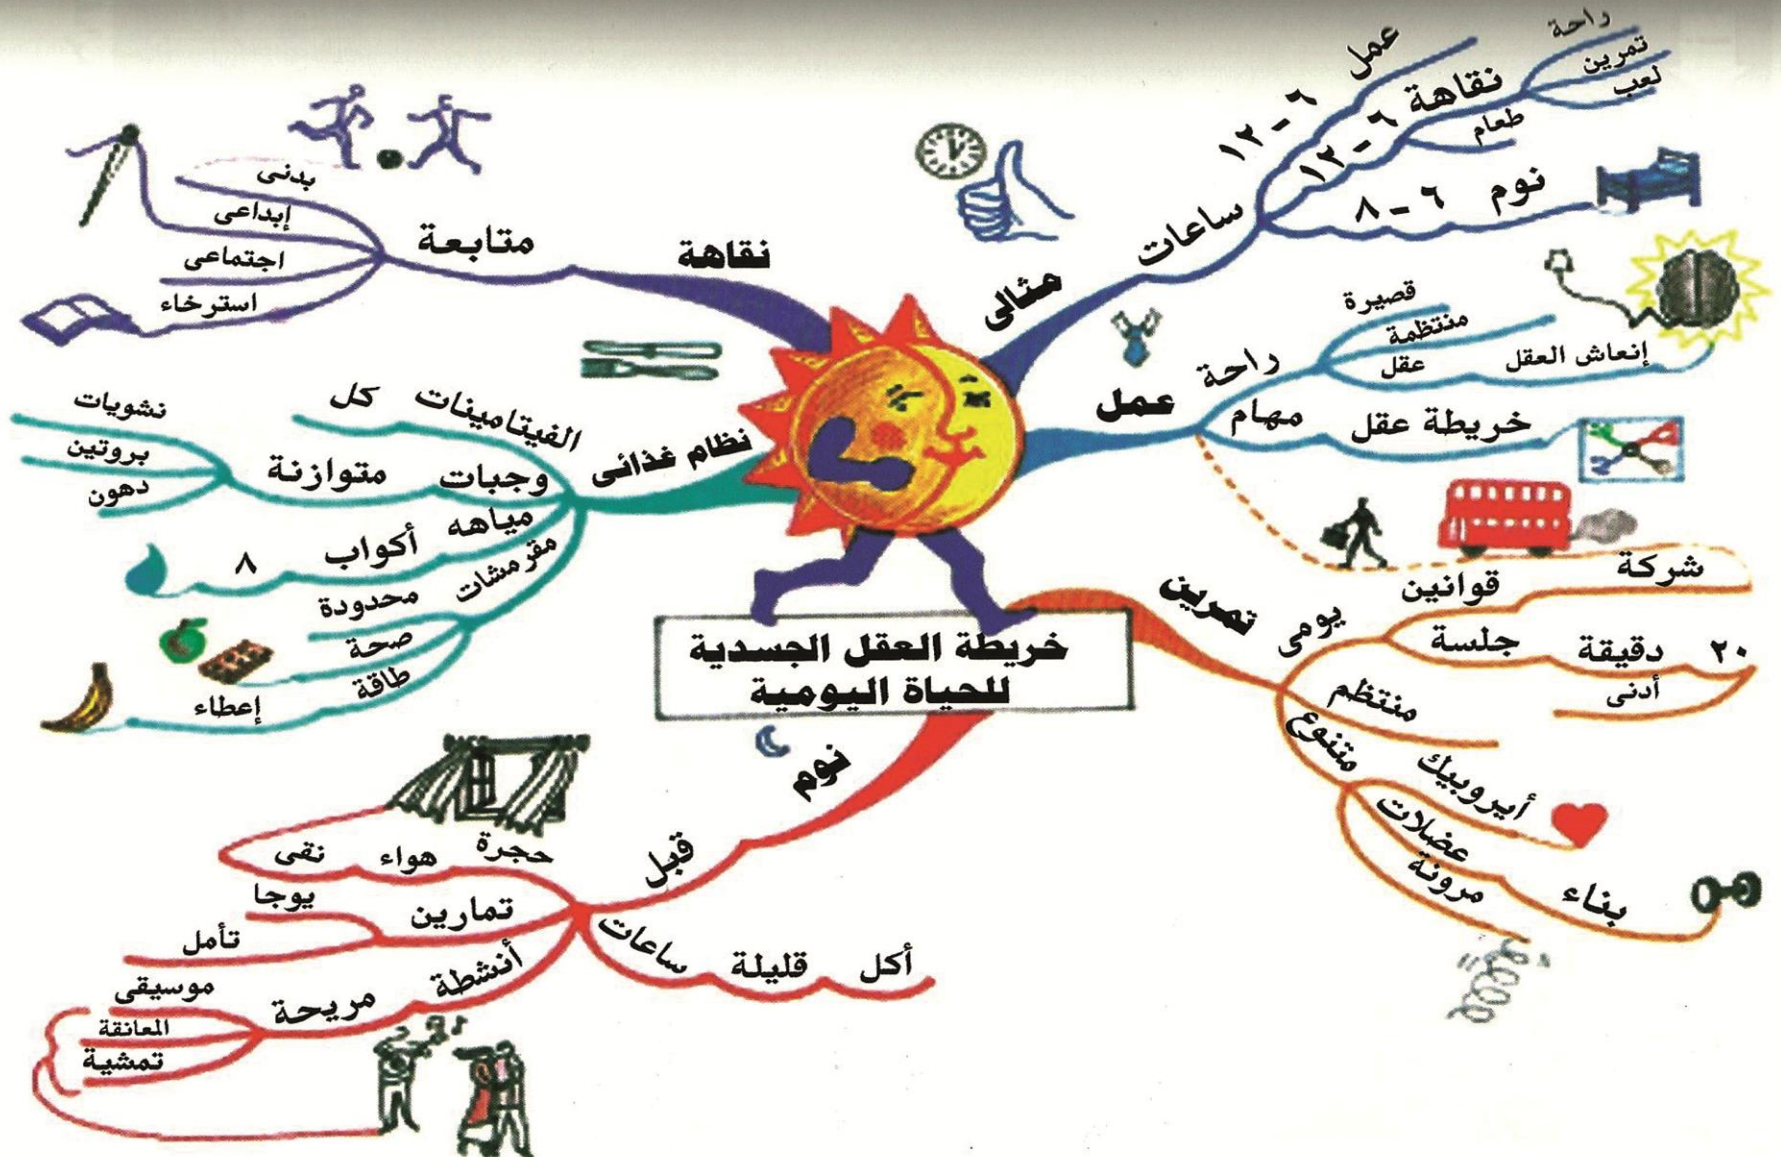 خريطة العقل الجسدية
للحياة اليومية
مثالى
ساعات
١٢ - ٦
عمل
١٢ - ٦
نقاهة
راحة
تمرين
لعب
طعام
٨ - ٦
نوم
عمل
راحة
قصيرة
منتظمة
عقل
إنعاش العقل
مهام
خريطة عقل
تمرين
يومى
قوانين
شركة
جلسة
دقيقة
٢٠
أدنى
منتظم
متنوع
أيروبيك
عضلات
بناء
مرونة
نوم
قبل
ساعات
قليلة
أكل
حجرة
هواء
نقى
تمارين
يوجا
تأمل
أنشطة
مريحة
موسيقى
المعانقة
تمشية
نظام غذائى
الفيتامينات
كل
وجبات
متوازنة
نشويات
بروتين
دهون
مياهه
أكواب
٨
مقرمشات
محدودة
صحة
طاقة
إعطاء
نقاهة
متابعة
بدنى
إبداعى
اجتماعى
استرخاء